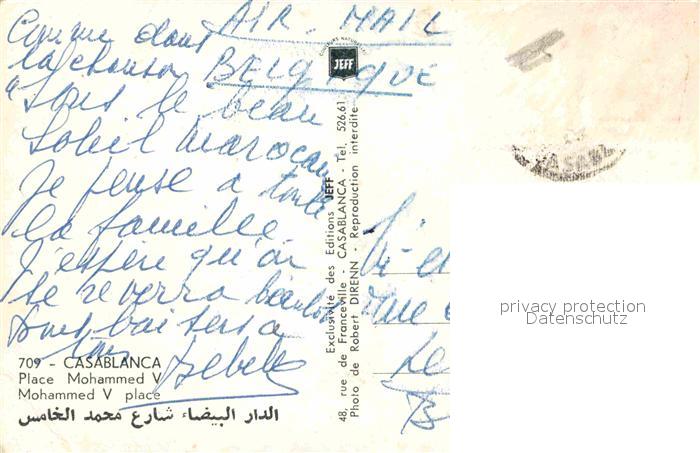 AIR-MAIL
BELGIQUE
Comme dans
la chanson
"Sous le beau
soleil marocain
Je pense a toute
la famille
J'espère qu'on
se reverra bientôt
bons baisers a
tous
709 - CASABLANCA
Place Mohammed V
Mohammed V place
الدار البيضاء شارع محمد الخامس
COULEURS NATURELLES
JEFF
Exclusivité des Editions JEFF
48, rue de Franceville - CASABLANCA - Tél. 526.61
Photo de Robert DIRENN - Reproduction interdite
rue
privacy protection
Datenschutz